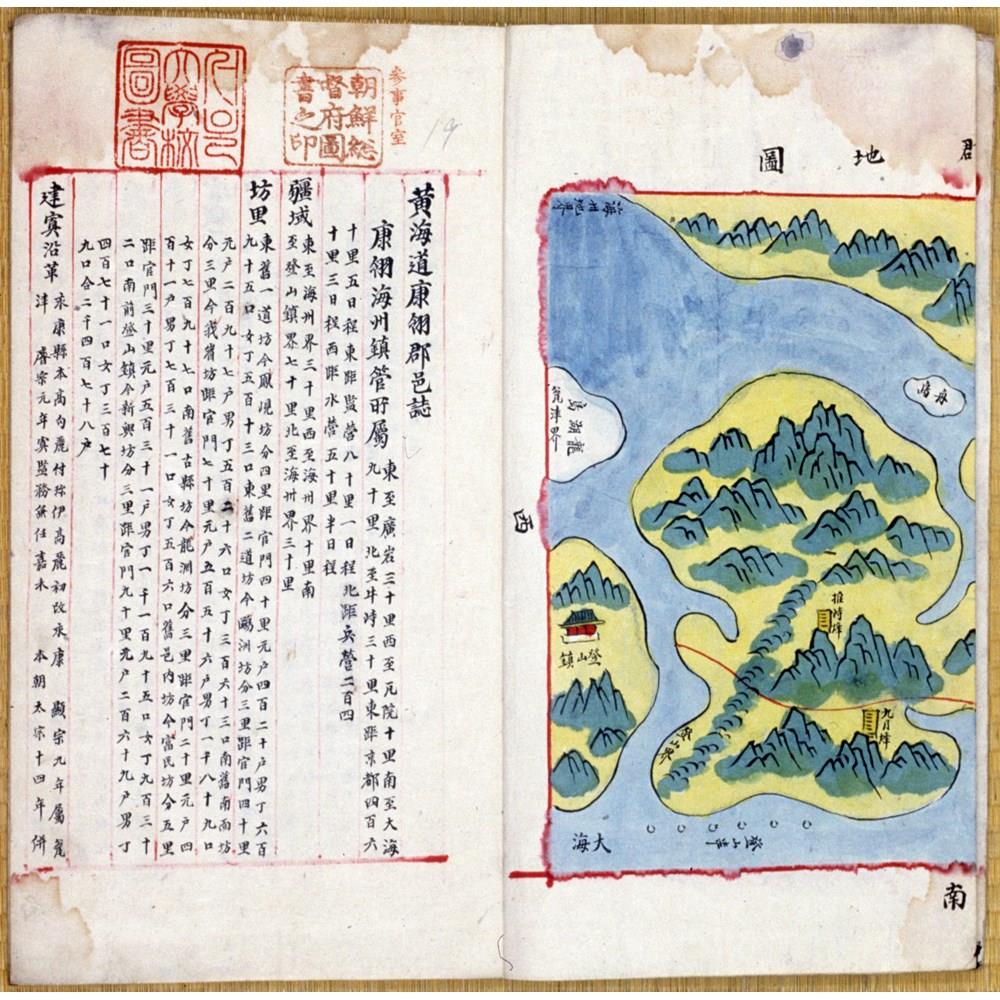 郡
地
圖
海州地界
龍湖島
瓮津界
西
登山鎮
推峙烽
九月烽
大海
南
參事官室
朝鮮総
督府圖
書之印
서울
大學校
圖書
黃海道康翎郡邑誌
康翎海州鎮管所屬 東至廣岩三十里西至瓦院十里南至大海
九十里北至井峙三十里東距京都四百六
十里五日程東距監營八十里一日程北距兵營二百四
十里三日程西距水營五十里半日程
疆域 東至海州界三十里西至海州界十里南
至登山鎮界七十里北至海州界三十里
坊里 東舊一道坊今鳳現坊分四里距官門四十里元户四百二十户男丁六百
九十五口女丁五百十三口東舊二道坊今鷗洲坊分三里距官門四十里
元户二百九十七户男丁五百二十六口女丁三百六十三口南舊南面坊
分三里今我眉坊距官門七十里元户五百五十六户男丁一千八十九口
女丁七百九十七口南舊古縣坊今龍淵坊分三里距官門二十里元户四
百十一户男丁七百三十一口女丁五百六口舊邑内坊今富民坊分五里
距官門三十里元户五百三十一户男丁一千一百九十五口女丁九百三十
二口南前登山鎮今新興坊分三里距官門九十里元户二百六十九户男丁
四百七十一口女丁三百七十
九口合二千四百七十八户
建寘沿革 永康縣本高句麗付珍伊高麗初改永康 顯宗九年屬瓮
津 睿宗元年寘監務兼任嘉禾 本朝太宗十四年併